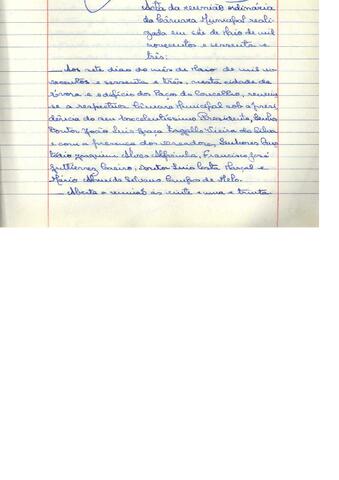 Acta da reunião ordinária
da Câmara Municipal reali-
zada em sete de Maio de mil
novecentos e sessenta e
três:
Aos sete dias do mês de Maio de mil no-
vecentos e sessenta e três, nesta cidade de
Évora e edifício dos Paços do Concelho, reuniu-
se a respectiva Câmara Municipal sob a presi-
dência do seu Excelentíssimo Presidente, Senhor
Doutor João Luís Vieira da Silva
e com a presença dos vereadores, Senhores
Joaquim Alves Francisco José
Doutor Luís Costa e
Mário de Melo.
Aberta a reunião às vinte e uma e trinta.